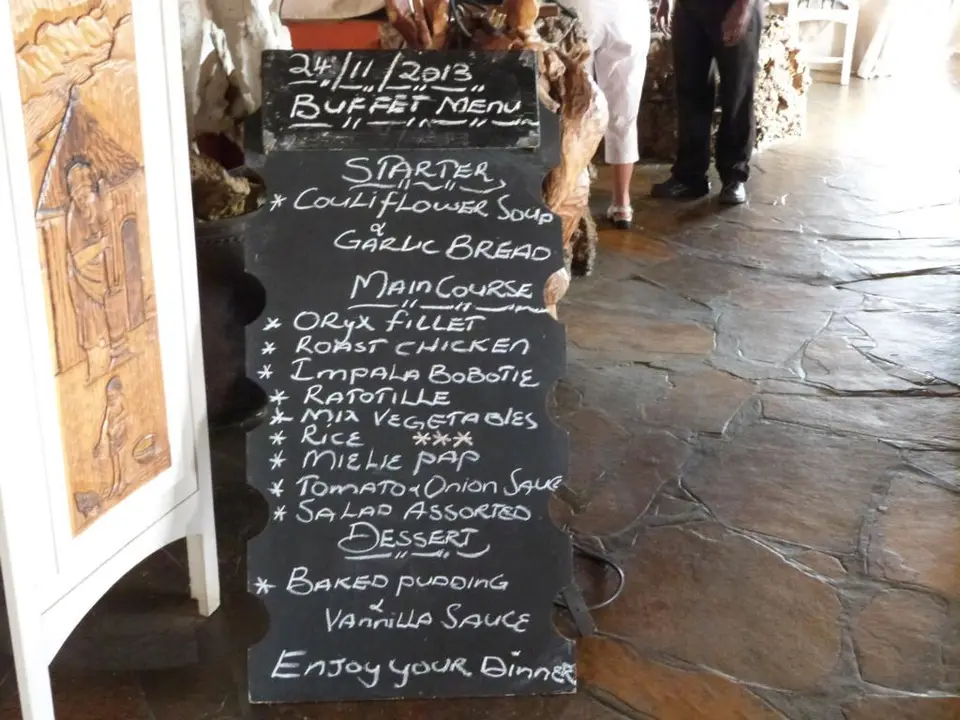 24/11/2013
BUFFET MENU
STARTER
* COULIFLOWER SOUP
&
GARLIC BREAD
MAIN COURSE
* ORYX FILLET
* ROAST CHICKEN
* IMPALA BOBOTIE
* RATOTILLE
* MIX VEGETABLES
* RICE ***
* MIELIE PAP
* TOMATO & ONION SAUCE
* SALAD ASSORTED
DESSERT
* BAKED PUDDING
&
VANNILLA SAUCE
ENJOY YOUR DINNER